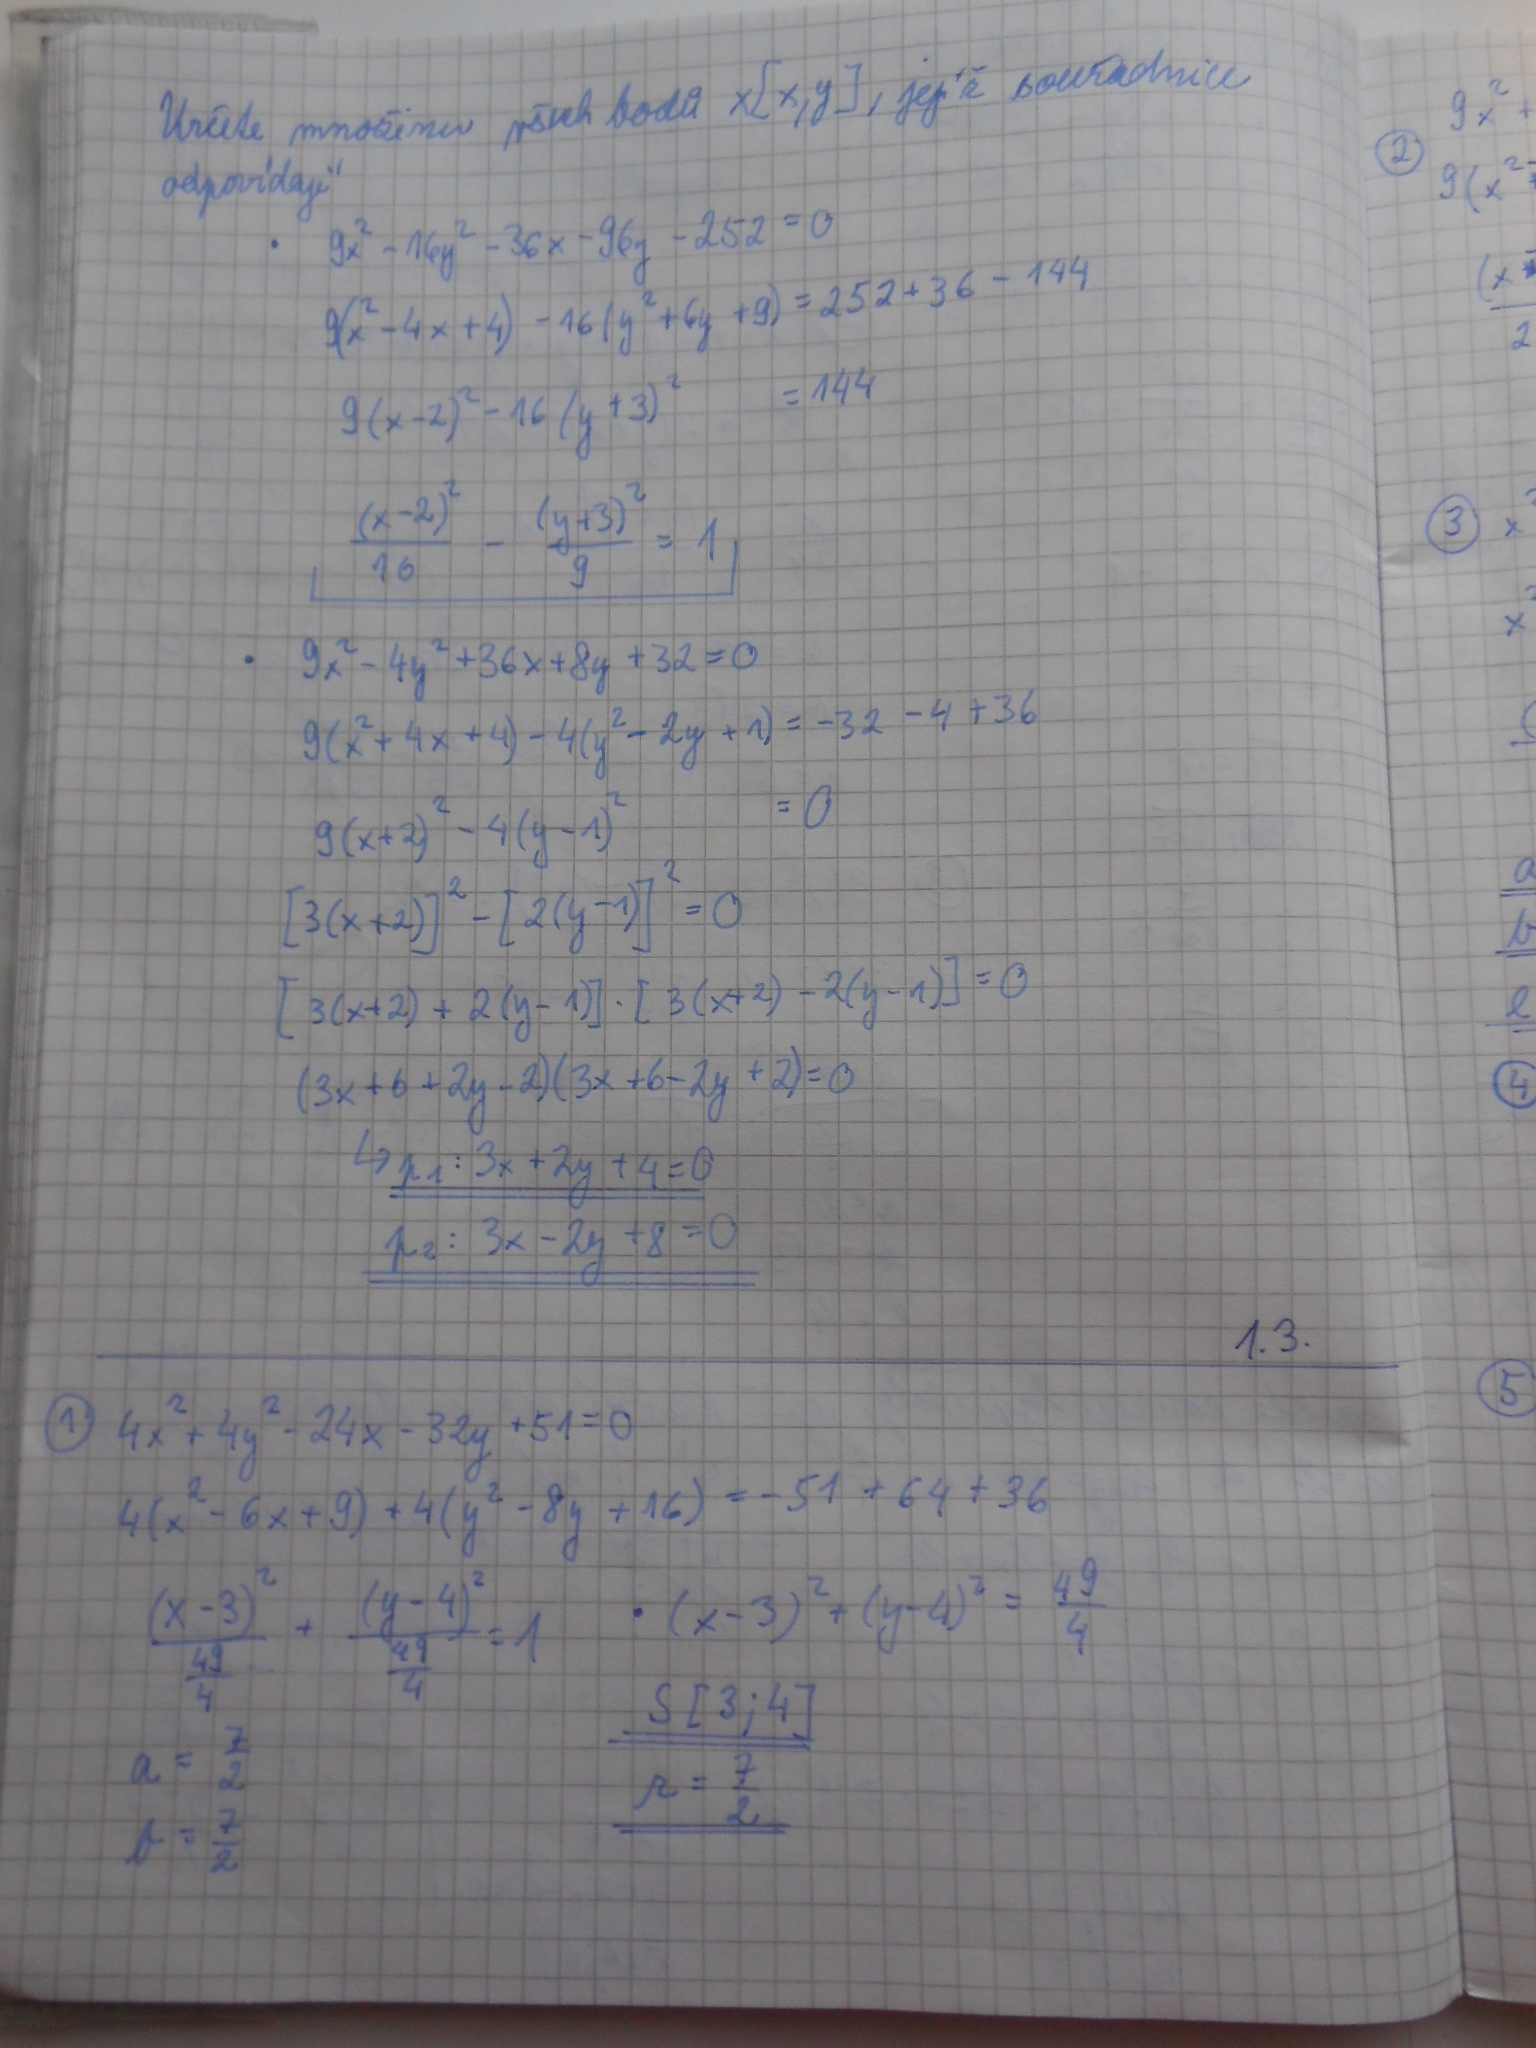 Určete množinu všech bodů x[x,y], jejíž souřadnice
odpovídají"
• 9x² - 16y² - 36x - 96y - 252 = 0
9(x² - 4x + 4) - 16(y² + 6y + 9) = 252 + 36 - 144
9(x-2)² - 16(y+3)² = 144
(x-2)²/16 - (y+3)²/9 = 1
• 9x² - 4y² + 36x + 8y + 32 = 0
9(x² + 4x + 4) - 4(y² - 2y + 1) = -32 - 4 + 36
9(x+2)² - 4(y-1)² = 0
[3(x+2)]² - [2(y-1)]² = 0
[3(x+2) + 2(y-1)] · [3(x+2) - 2(y-1)] = 0
(3x + 6 + 2y - 2)(3x + 6 - 2y + 2) = 0
↳ p₁: 3x + 2y + 4 = 0
p₂: 3x - 2y + 8 = 0
1.3.
① 4x² + 4y² - 24x - 32y + 51 = 0
4(x² - 6x + 9) + 4(y² - 8y + 16) = -51 + 64 + 36
(x-3)²/(49/4) + (y-4)²/(49/4) = 1
• (x-3)² + (y-4)² = 49/4
S[3;4]
r = 7/2
a = 7/2
b = 7/2
② 9x² +
9(x²
③ x²
x²
a
b
e
④
⑤